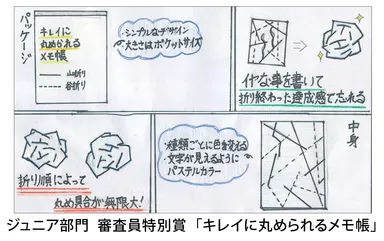 パッケージ
キレイに
丸められる
メモ帳
山折り
谷折り
シンプルなデザイン
大きさはポケットサイズ
イヤな事を書いて
折り終わった達成感で忘れる
折り順によって
丸め具合が無限大!
種類ごとに色を変える
文字が見えるように
パステルカラー
中身
ジュニア部門 審査員特別賞 「キレイに丸められるメモ帳」